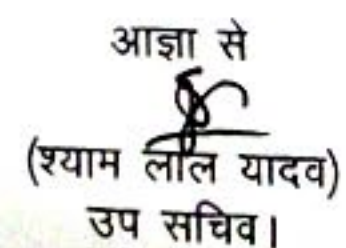 आज्ञा से
(श्याम लाल यादव)
उप सचिव।